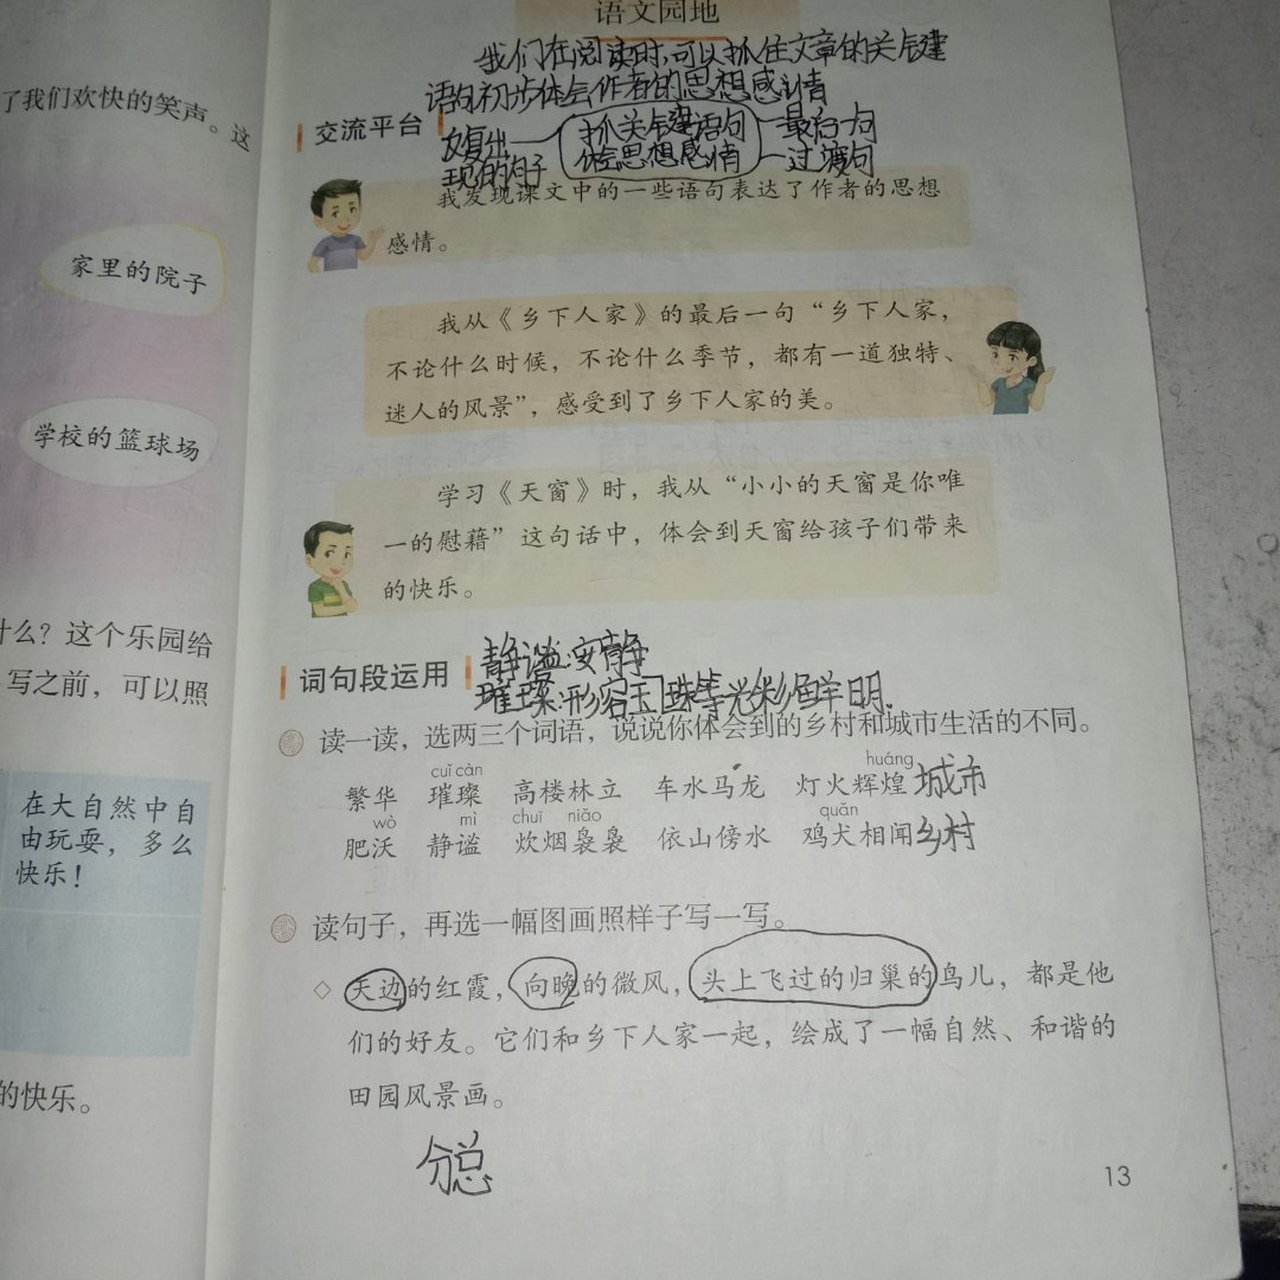 了我们欢快的笑声。这
家里的院子
学校的篮球场
什么？这个乐园给
写之前，可以照
在大自然中自
由玩耍，多么
快乐！
的快乐。
语文园地
我们在阅读时,可以抓住文章的关键
语句初步体会作者的思想感情
交流平台
反复出
现的句子
抓关键语句
体会思想感情
最后一句
过渡句
我发现课文中的一些语句表达了作者的思想
感情。
我从《乡下人家》的最后一句“乡下人家，
不论什么时候，不论什么季节，都有一道独特、
迷人的风景”，感受到了乡下人家的美。
学习《天窗》时，我从“小小的天窗是你唯
一的慰藉”这句话中，体会到天窗给孩子们带来
的快乐。
词句段运用
静谧:安静
璀璨:形容玉珠等光彩鲜明.
读一读，选两三个词语，说说你体会到的乡村和城市生活的不同。
cuǐ càn huáng
繁华 璀璨 高楼林立 车水马龙 灯火辉煌 城市
wò mì chuī niǎo quǎn
肥沃 静谧 炊烟袅袅 依山傍水 鸡犬相闻 乡村
读句子，再选一幅图画照样子写一写。
◇ 天边的红霞，向晚的微风，头上飞过的归巢的鸟儿，都是他
们的好友。它们和乡下人家一起，绘成了一幅自然、和谐的
田园风景画。
分总
13